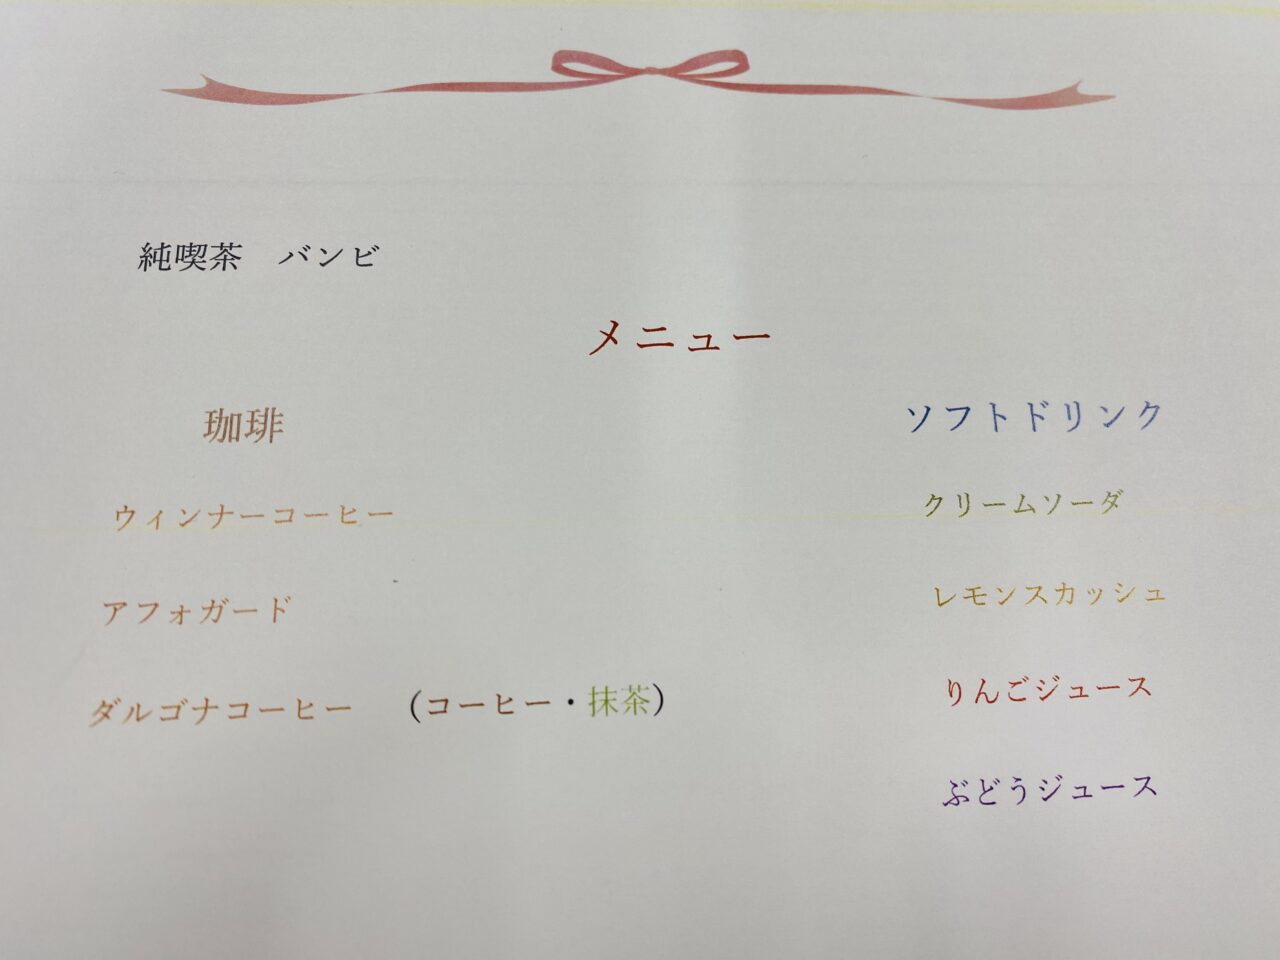 純喫茶　バンビ
メニュー
珈琲
ウィンナーコーヒー
アフォガード
ダルゴナコーヒー　（コーヒー・抹茶）
ソフトドリンク
クリームソーダ
レモンスカッシュ
りんごジュース
ぶどうジュース